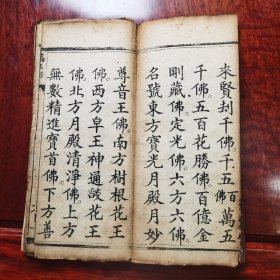 來賢刼千佛。千五百佛萬五
千佛。五百花勝佛。百億金
剛藏佛。定光佛。六方六佛。
名號東方寶光月殿月妙
尊音王佛。南方樹根花王
佛。西方皁王神通燄花王
佛。北方月殿清淨佛。上方
無數精進寶首佛。下方善